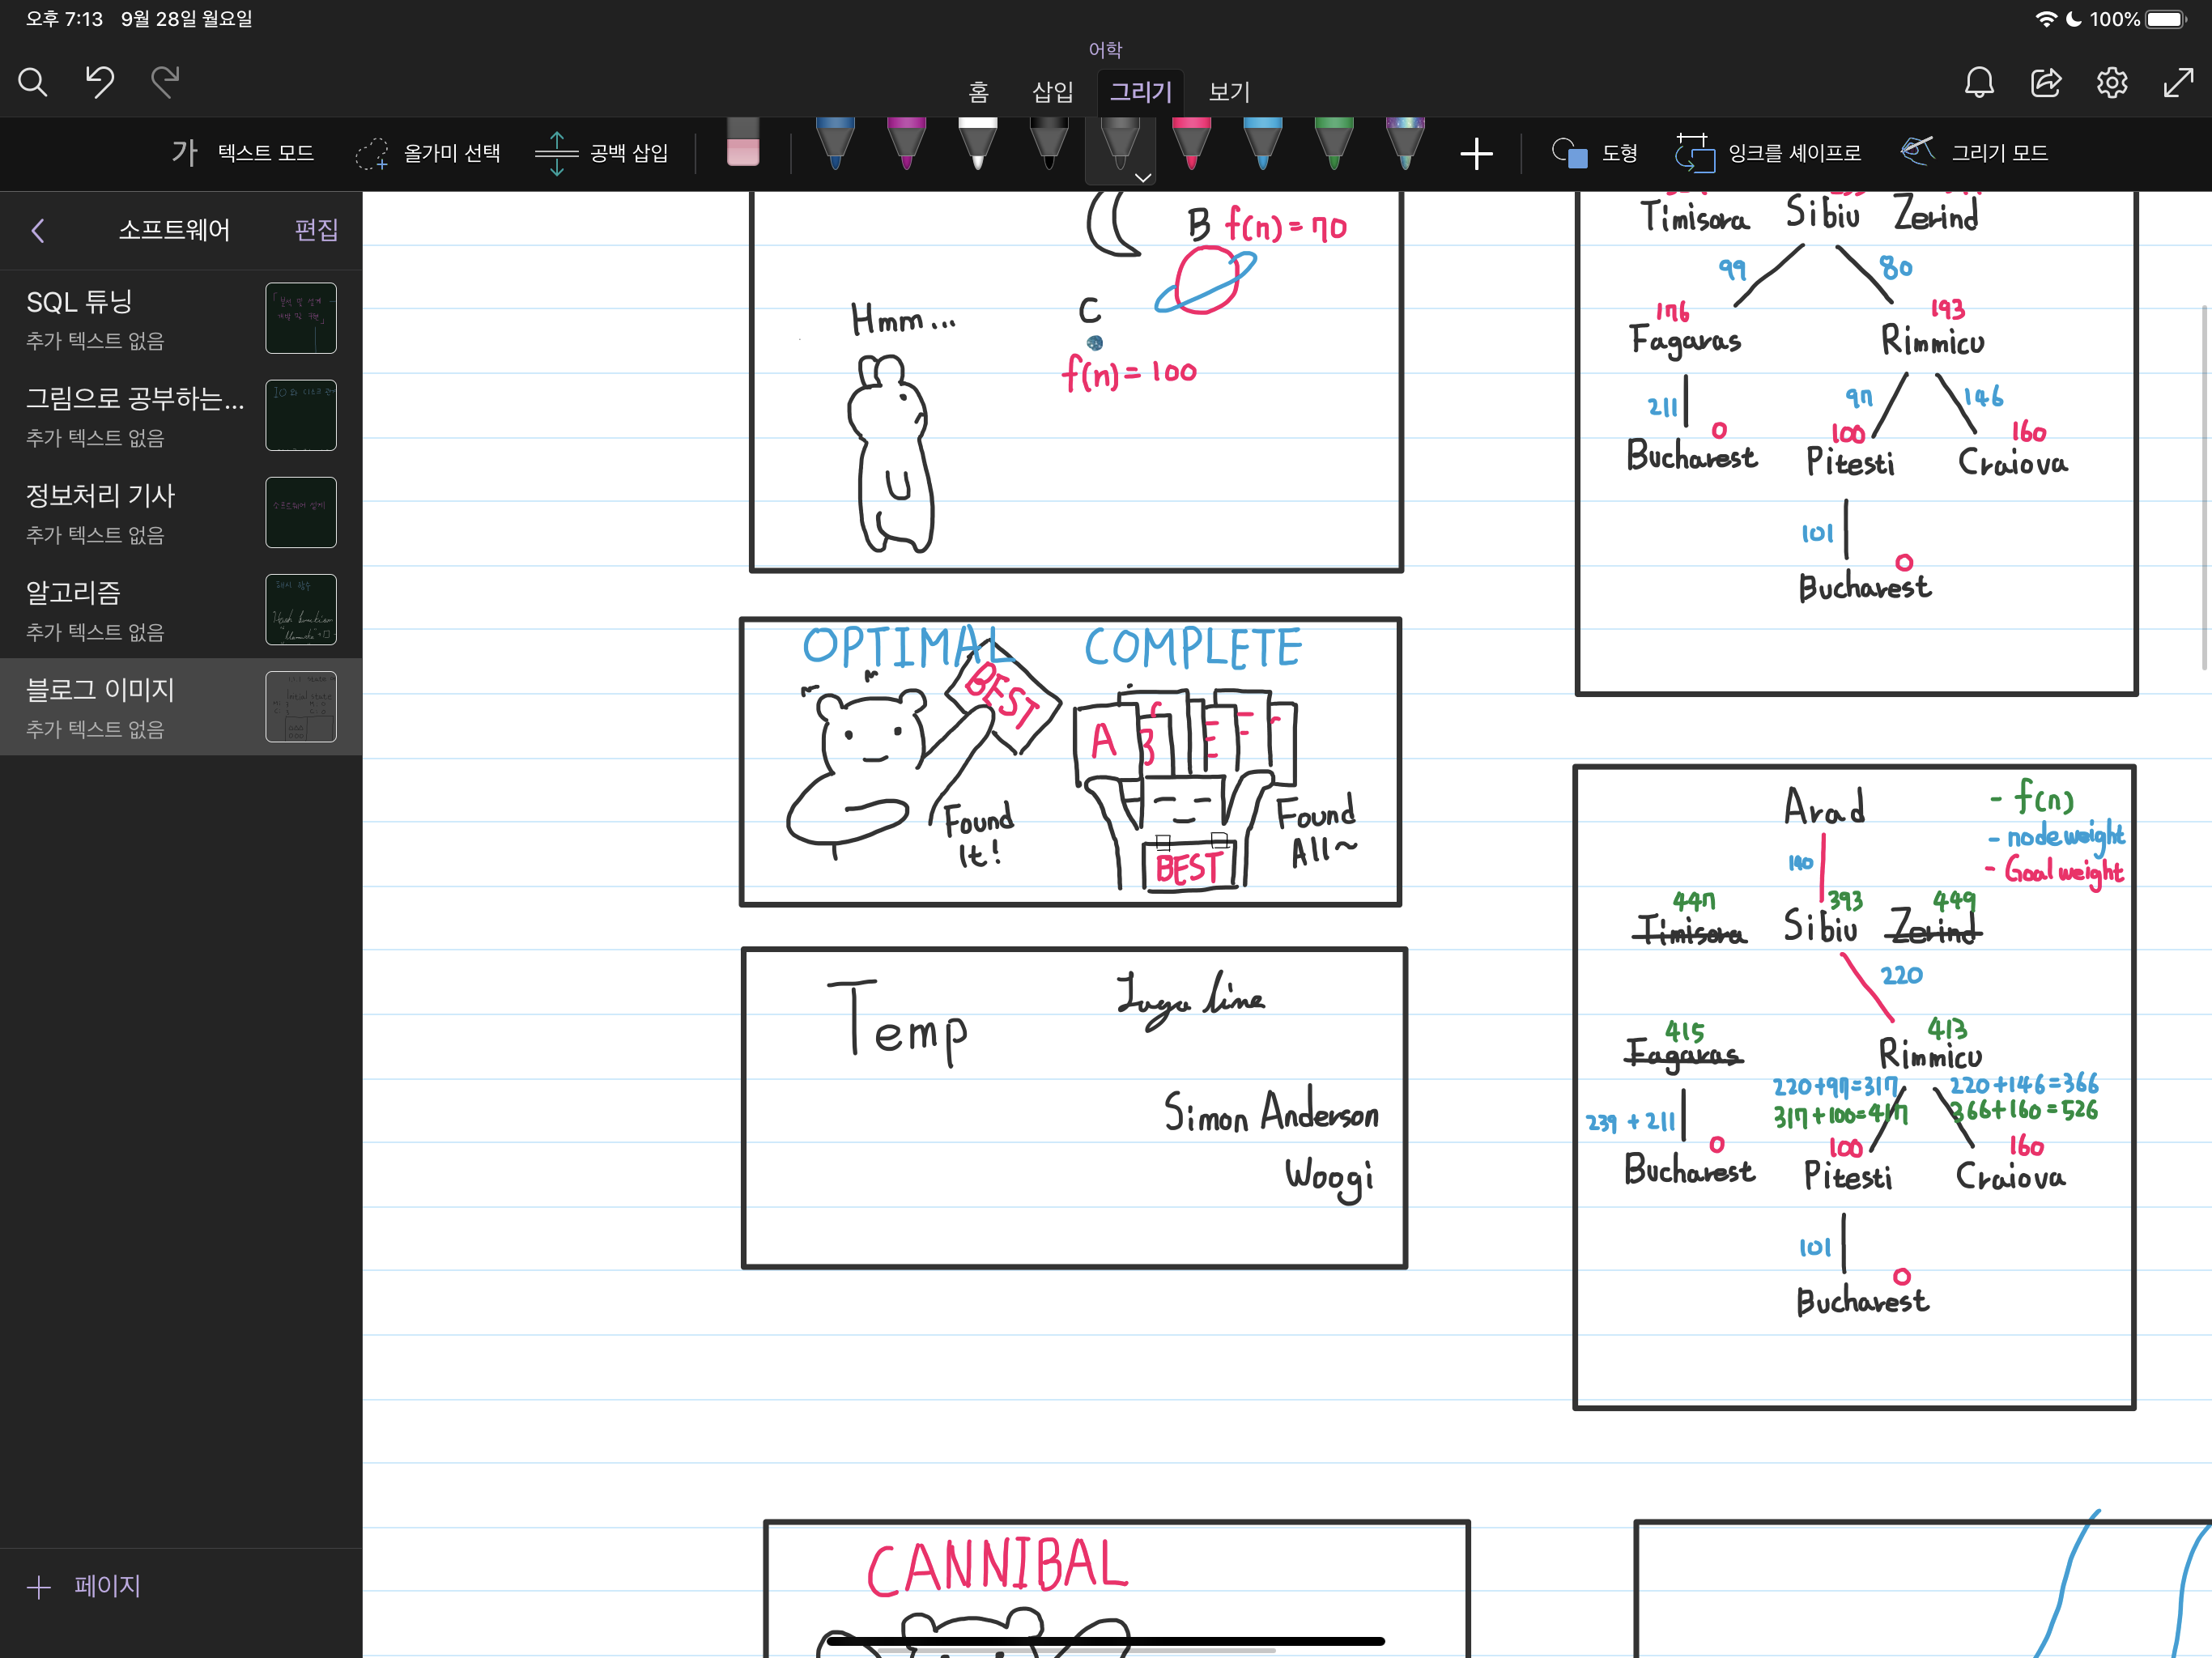 오후 7:13 9월 28일 월요일
100%
어학
홈 삽입 그리기 보기
가 텍스트 모드 올가미 선택 공백 삽입 도형 잉크를 셰이프로 그리기 모드
소프트웨어 편집
SQL 튜닝
추가 텍스트 없음
그림으로 공부하는...
추가 텍스트 없음
정보처리 기사
추가 텍스트 없음
알고리즘
추가 텍스트 없음
블로그 이미지
추가 텍스트 없음
페이지
B f(n) = 70
Hmm...
C
f(n) = 100
OPTIMAL COMPLETE
BEST
A
Found
It!
Found
All~
BEST
Temp
line
Simon Anderson
Woogi
CANNIBAL
Timisora Sibiu Zerind
99 80
176 193
Fagaras Rimmicu
211 97 146
0 100 160
Bucharest Pitesti Craiova
101
0
Bucharest
Arad
- f(n)
- node weight
- Goal weight
140
447 393 449
Timisora Sibiu Zerind
220
415 413
Fagaras Rimmicu
220+97=317 220+146=366
317+100=417 366+160=526
239 + 211
0 100 160
Bucharest Pitesti Craiova
101
0
Bucharest